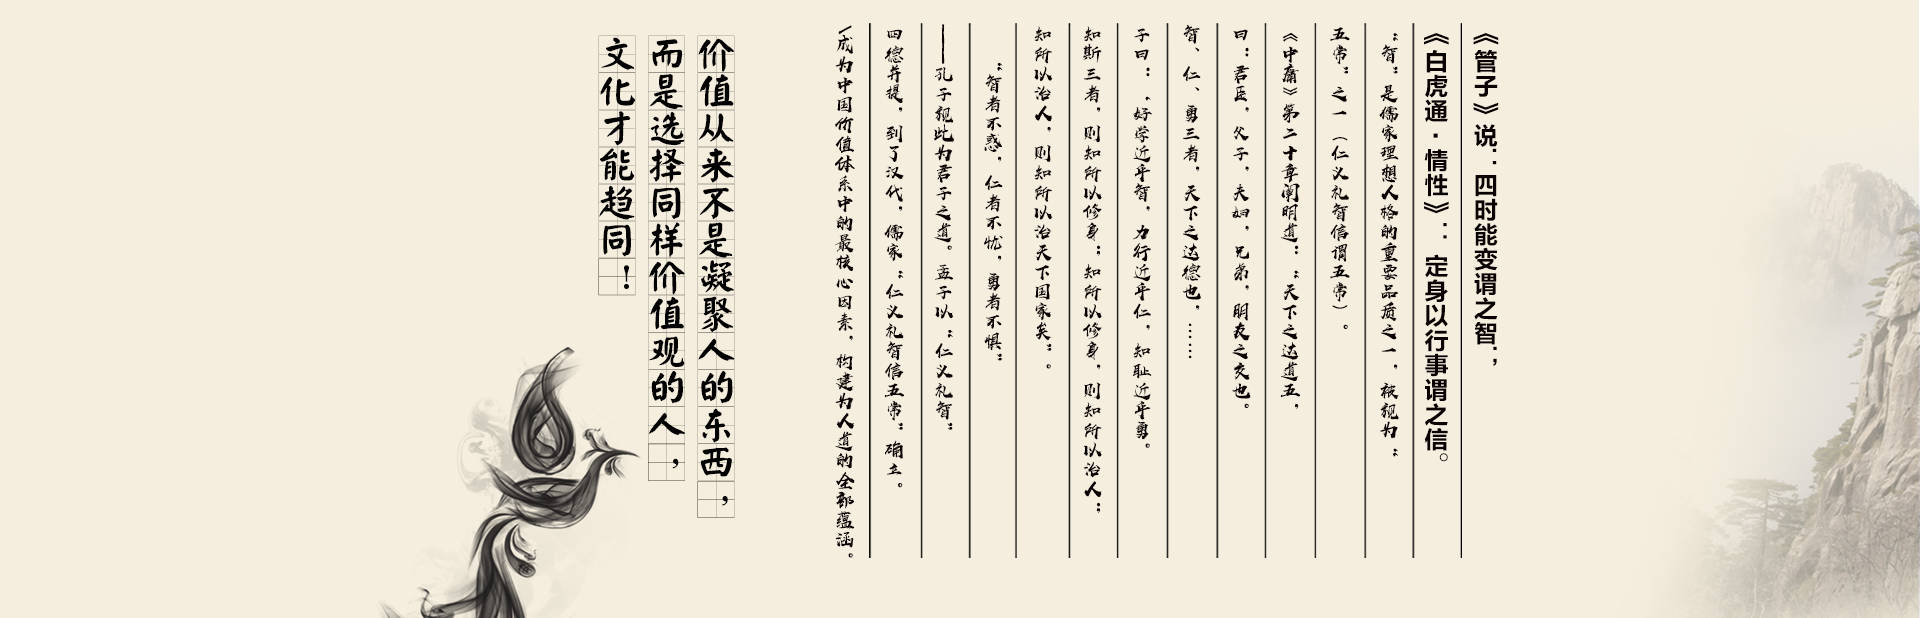 《管子》说：四时能变谓之智；
《白虎通·情性》：定身以行事谓之信。
“智”是儒家理想人格的重要品质之一，被视为“
五常”之一（仁义礼智信谓五常）。
《中庸》第二十章阐明道：“天下之达道五，
曰：君臣，父子，夫妇，兄弟，朋友之交也。
智、仁、勇三者，天下之达德也，……
子曰：“好学近乎智，力行近乎仁，知耻近乎勇。
知斯三者，则知所以修身；知所以修身，则知所以治人；
知所以治人，则知所以治天下国家矣”。
“智者不惑，仁者不忧，勇者不惧”
——孔子视此为君子之道。孟子以“仁义礼智”
四德并提，到了汉代，儒家“仁义礼智信五常”确立。
成为中国价值体系中的最核心因素，构建为人道的全部蕴涵。
价值从来不是凝聚人的东西，
而是选择同样价值观的人，
文化才能趋同！